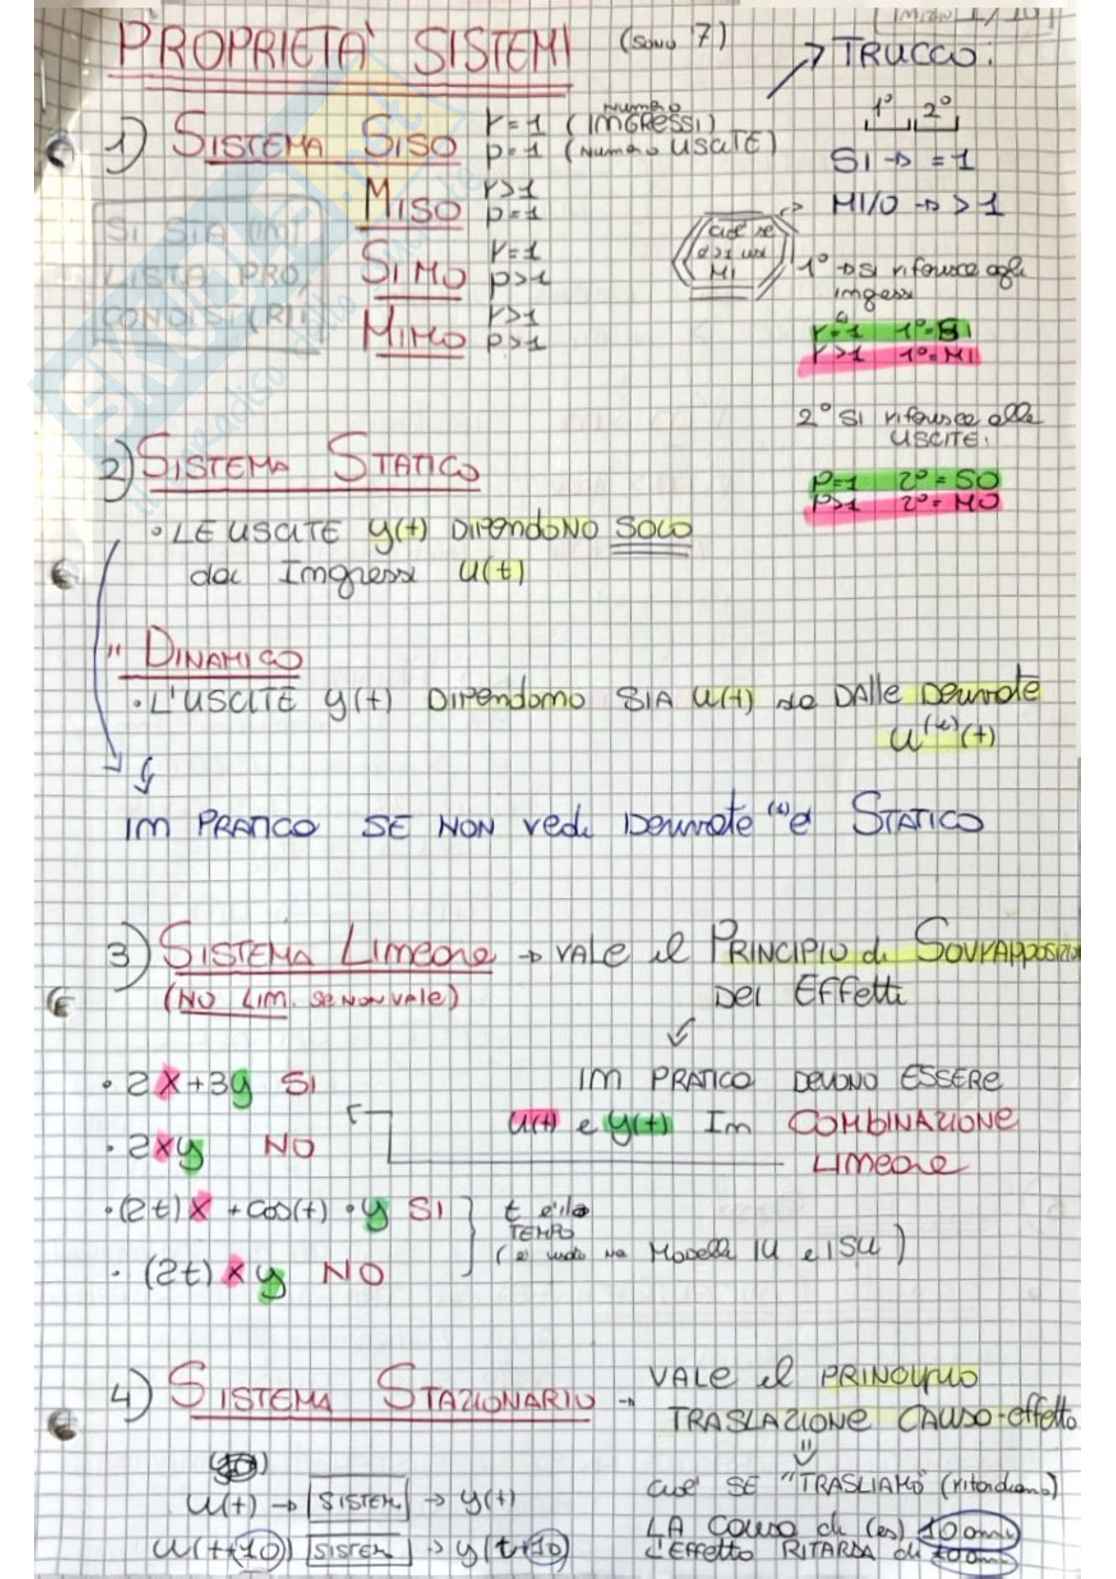 PROPRIETA' SISTEMI (sono 7)
→ TRUCCO:
1° 2°
SI → = 1
MI/O → > 1
1) SISTEMA SISO r = 1 (numero INGRESSI)
p = 1 (numero USCITE)
MISO r>1
p=1
SIMO r=1
p>1
MIMO r>1
p>1
cioè se
è >1 usi
MI
1° → si riferisce agli
ingressi
r=1 1°=SI
r>1 1°=MI
2° SI riferisce alle
USCITE.
P=1 2°=SO
P>1 2°=MO
2) SISTEMA STATICO
• LE USCITE y(t) DIPENDONO SOLO
dai Ingressi u(t)
" DINAMICO
• L'USCITE y(t) DIPendono SIA u(t) sia DALLE Derivate
u⁽ⁱ⁾(t)
IM PRATICO SE NON vedi Derivate ⁽ⁱ⁾ e' STATICO
3) SISTEMA Limeare → VALE il PRINCIPIO di SOVRAPPOSIZION
(NO LIM. se NON VALE) DEI Effetti
• 2x+3y SI
IM PRATICO DEVONO ESSERE
u(t) e y(t) Im COMBINAZIONE
LIMEARE
• 2xy NO
• (2t)x + cos(t) • y SI
• (2t) x y NO
t è il
TEMPO
Modelli IU e ISU)
4) SISTEMA STAZIONARIO → VALE il PRINCIPIO
TRASLAZIONE CAUSO-effetto
u(t) → SISTEM → y(t)
u(t+10) SISTEM → y(t+10)
cioè SE "TRASLIAMO" (ritardiamo)
LA causa di (es) 10 anni
L'Effetto RITARDA di 10 anni